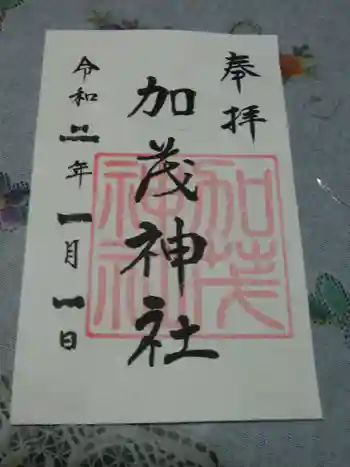 奉拝
加茂神社
令和二年一月一日
加茂
神社